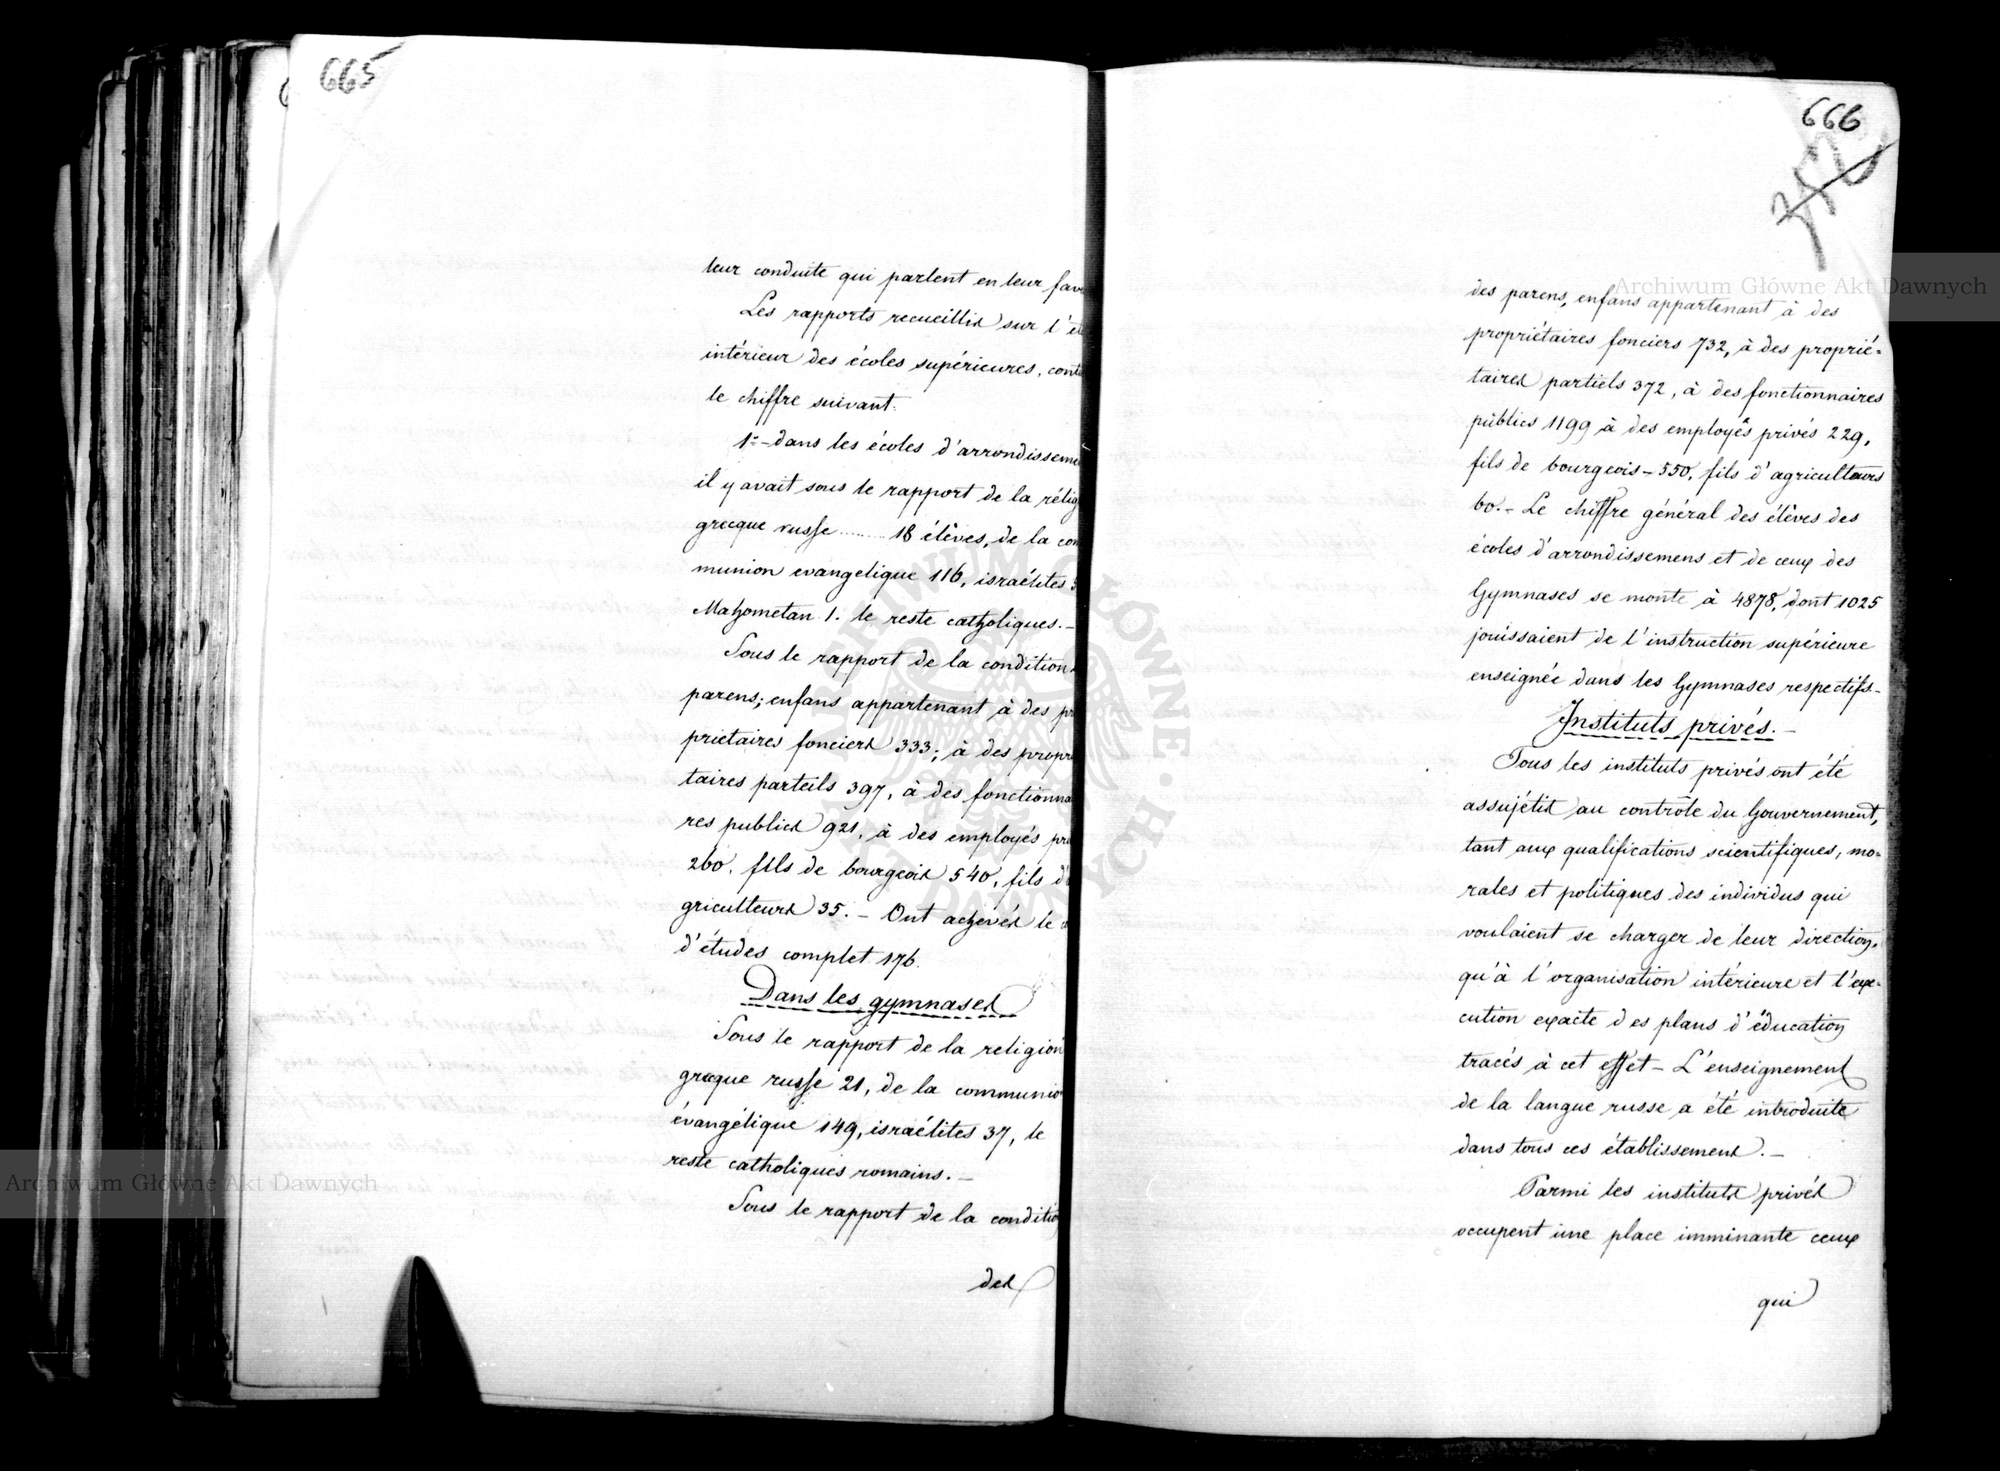 665
leur conduite qui parlent en leur fav
Les rapports recueillis sur l'ét
intérieur des écoles supérieures, conti
le chiffre suivant.
1º- dans les écoles d'arrondisseme
il y avait sous le rapport de la rélig
grecque russe ......... 18 élèves, de la com
munion evangelique 116, israélites
Mahometan 1. le reste catholiques. -
Sous le rapport de la condition
parens; enfans appartenant à des pr
prietaires fonciers 333; à des propri
taires parteils 397, à des fonctionna
res publics 921, à des employés pri
260. fils de bourgeois 540, fils d'a
griculteurs 35. - Ont achevés le
d'études complet 176.
Dans les gymnases
Sous le rapport de la religion
grecque russe 21, de la communio
évangélique 149, israélites 37, le
reste catholiques romains. -
Sous le rapport de la conditio
des
666
des parens, enfans appartenant à des
propriétaires fonciers 732, à des proprié-
taires partiels 372, à des fonctionnaires
publics 1199 à des employés privés 229,
fils de bourgeois - 550, fils d'agriculteurs
60. - Le chiffre général des élèves des
écoles d'arrondissemens et de ceux des
Gymnases se monte à 4878, dont 1025
jouissaient de l'instruction supérieure
enseignée dans les Gymnases respectifs -
Instituts privés. -
Tous les instituts privés ont été
assujétis au contrôle du Gouvernement,
tant aux qualifications scientifiques, mo-
rales et politiques des individus qui
voulaient se charger de leur direction,
qu'à l'organisation intérieure et l'exé-
cution exacte des plans d'éducation
tracés à cet effet - L'enseignement
de la langue russe a été introduite
dans tous ces établissemens. -
Parmi les instituts privés
occupent une place imminante ceux
qui
Archiwum Główne Akt Dawnych
Archiwum Główne Akt Dawnych
ARCHIWUM GŁÓWNE AKT DAWNYCH